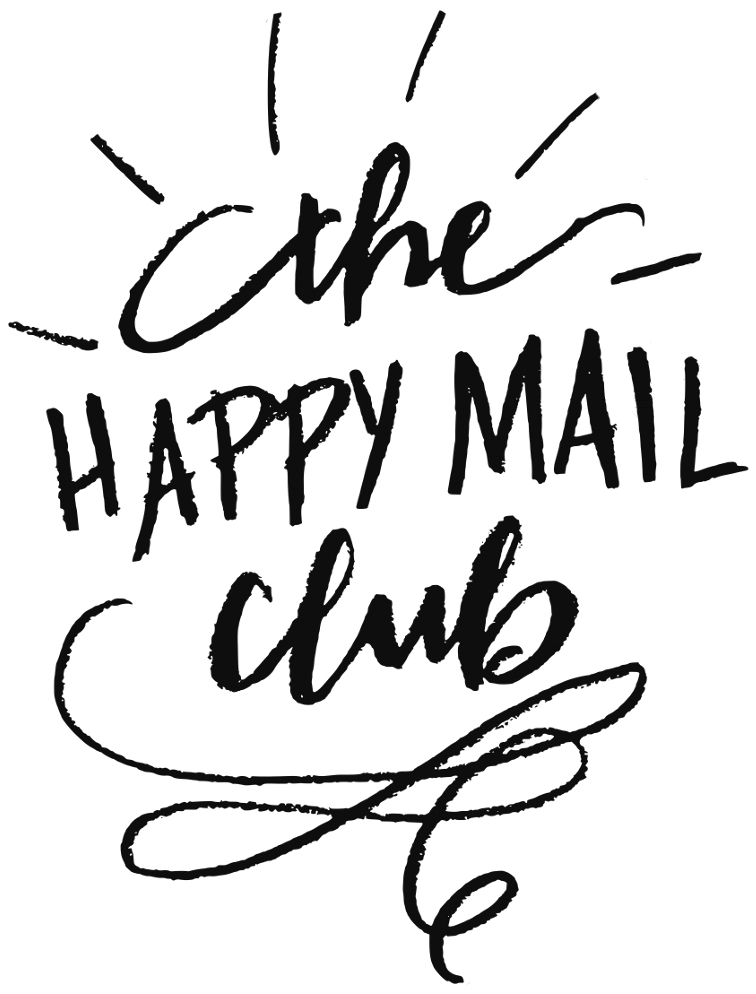 the
HAPPY MAIL
club